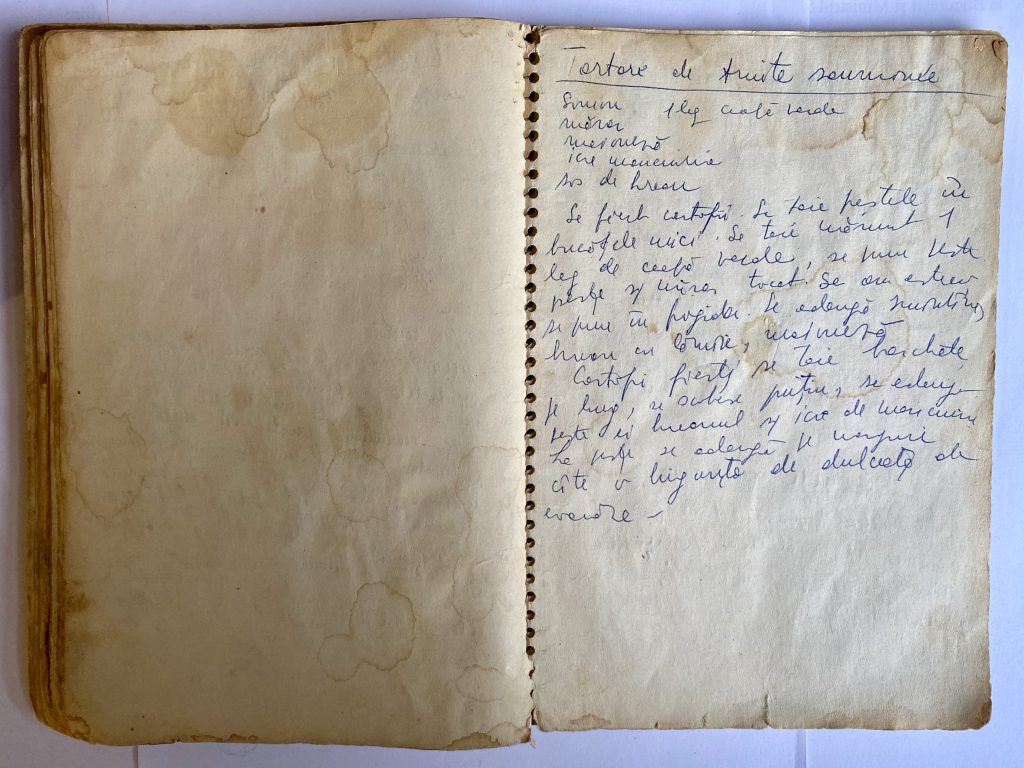 Tartare de truite saumonée
Somon 1 leg ceapă verde
mărar
maioneză
icre manciuria
sos de hrean
Se fierb cartofii. Se taie peștele în
bucățele mici. Se taie mărunt 1
leg de ceapă verde, se pune peste
pește și mărar tocat. Se
se pune în frigider. Se adaugă smântână,
hrean cu lămâie, maioneză
Cartofii fierți se taie barchete,
pe lung, se scobesc puțin, se adaugă
peste ei hreanul și icre de manciuria
La pește se adaugă pe margine
cîte o linguriță de dulceață de